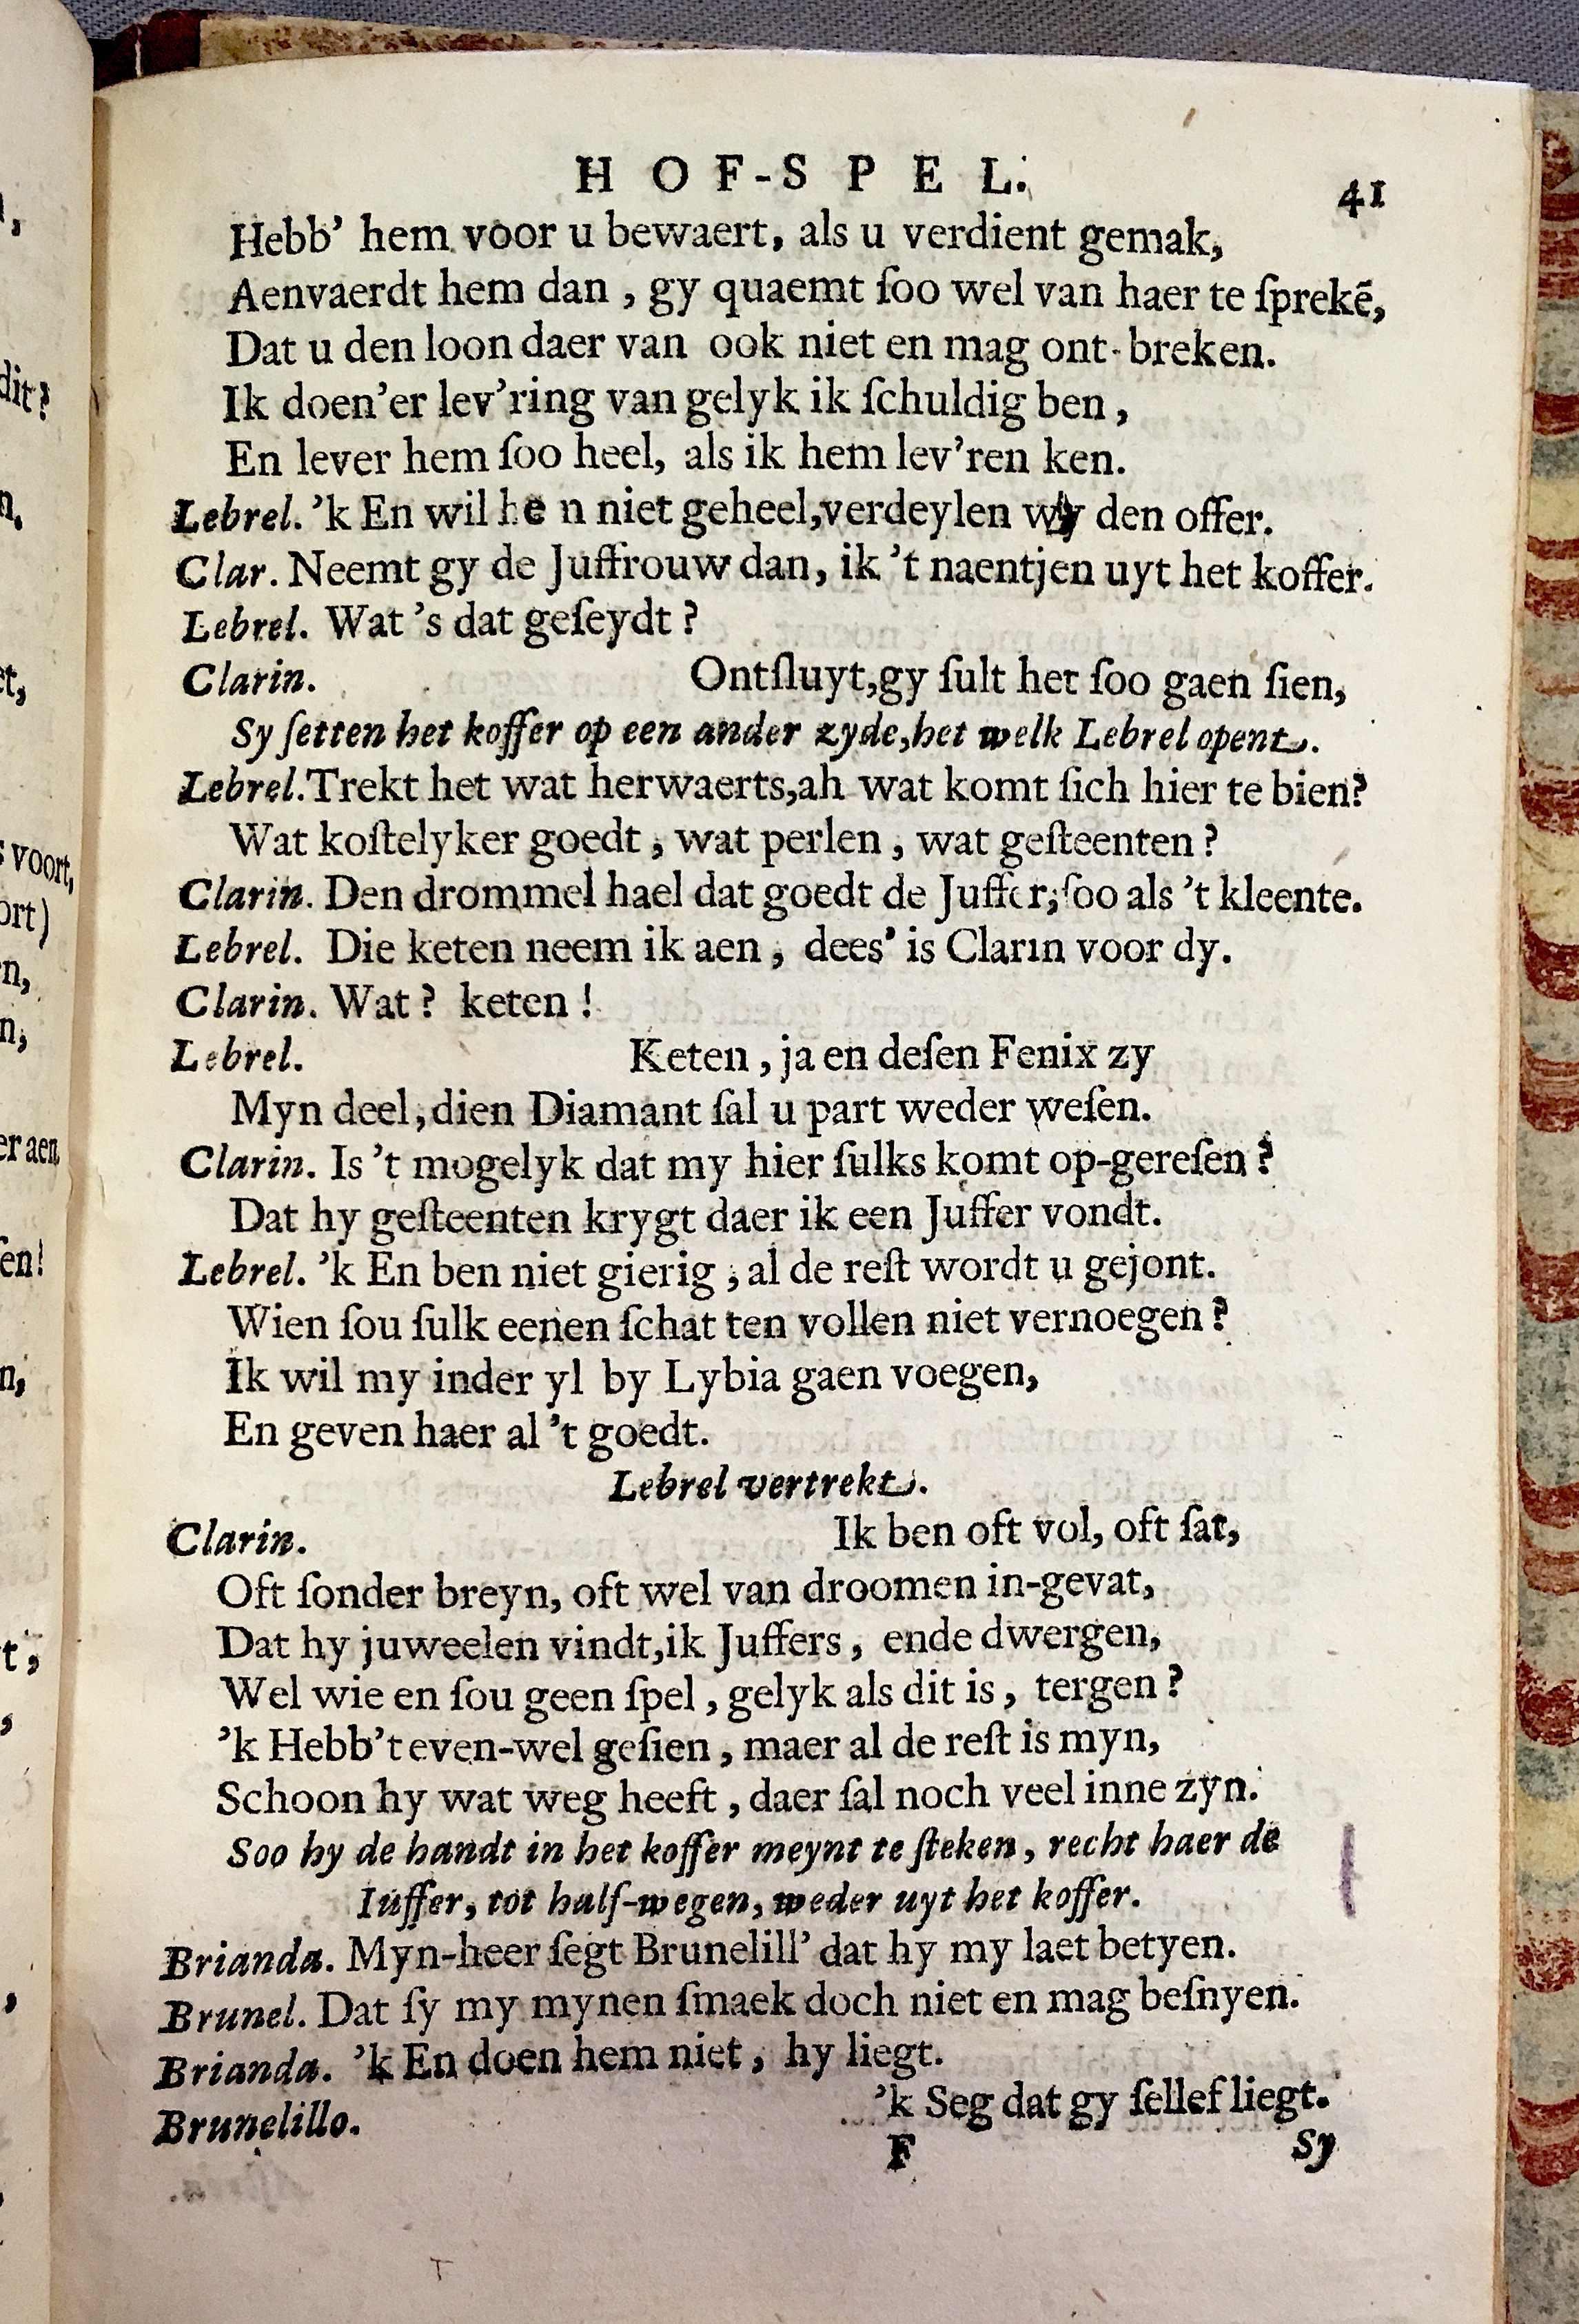 HOF-SPEL.
41
Hebb' hem voor u bewaert, als u verdient gemak,
Aenvaerdt hem dan , gy quaemt ſoo wel van haer te ſprekē,
Dat u den loon daer van ook niet en mag ont-breken.
Ik doen'er lev'ring van gelyk ik ſchuldig ben ,
En lever hem ſoo heel, als ik hem lev'ren ken.
Lebrel. 'k En wil he n niet geheel,verdeylen wy den offer.
Clar. Neemt gy de Juffrouw dan, ik 't naentjen uyt het koffer.
Lebrel. Wat 's dat geſeydt ?
Clarin. Ontſluyt,gy ſult het ſoo gaen ſien,
Sy ſetten het koffer op een ander zyde,het welk Lebrel opent.
Lebrel.Trekt het wat herwaerts,ah wat komt ſich hier te bien?
Wat koſtelyker goedt , wat perlen , wat geſteenten ?
Clarin. Den drommel hael dat goedt de Juffer,ſoo als 't kleente.
Lebrel. Die keten neem ik aen , dees' is Clarin voor dy.
Clarin. Wat ? keten !
Lebrel. Keten , ja en deſen Fenix zy
Myn deel,dien Diamant ſal u part weder weſen.
Clarin. Is 't mogelyk dat my hier ſulks komt op-gereſen ?
Dat hy geſteenten krygt daer ik een Juffer vondt.
Lebrel. 'k En ben niet gierig , al de reſt wordt u gejont.
Wien ſou ſulk eenen ſchat ten vollen niet vernoegen ?
Ik wil my inder yl by Lybia gaen voegen,
En geven haer al 't goedt.
Lebrel vertrekt.
Clarin. Ik ben oft vol, oft ſat,
Oft ſonder breyn, oft wel van droomen in-gevat,
Dat hy juweelen vindt,ik Juffers , ende dwergen,
Wel wie en ſou geen ſpel , gelyk als dit is , tergen ?
'k Hebb't even-wel geſien , maer al de reſt is myn,
Schoon hy wat weg heeft , daer ſal noch veel inne zyn.
Soo hy de handt in het koffer meynt te ſteken , recht haer de
Iuffer, tot halſ-wegen, weder uyt het koffer.
Brianda. Myn-heer ſegt Brunelill' dat hy my laet betyen.
Brunel. Dat ſy my mynen ſmaek doch niet en mag beſnyen.
Brianda. 'k En doen hem niet , hy liegt.
Brunelillo. 'k Seg dat gy ſellef liegt.
F Sy